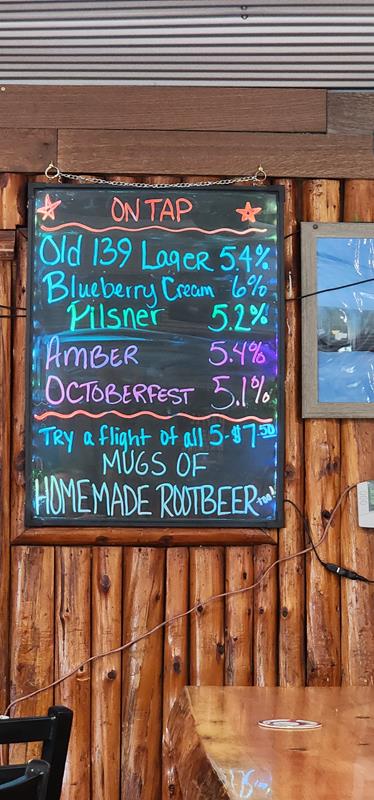 ON TAP
Old 139 Lager 5.4%
Blueberry Cream 6%
Pilsner 5.2%
AMBER 5.4%
OCTOBERFEST 5.1%
Try a flight of all 5-$7.50
MUGS OF
HOMEMADE ROOTBEER too!